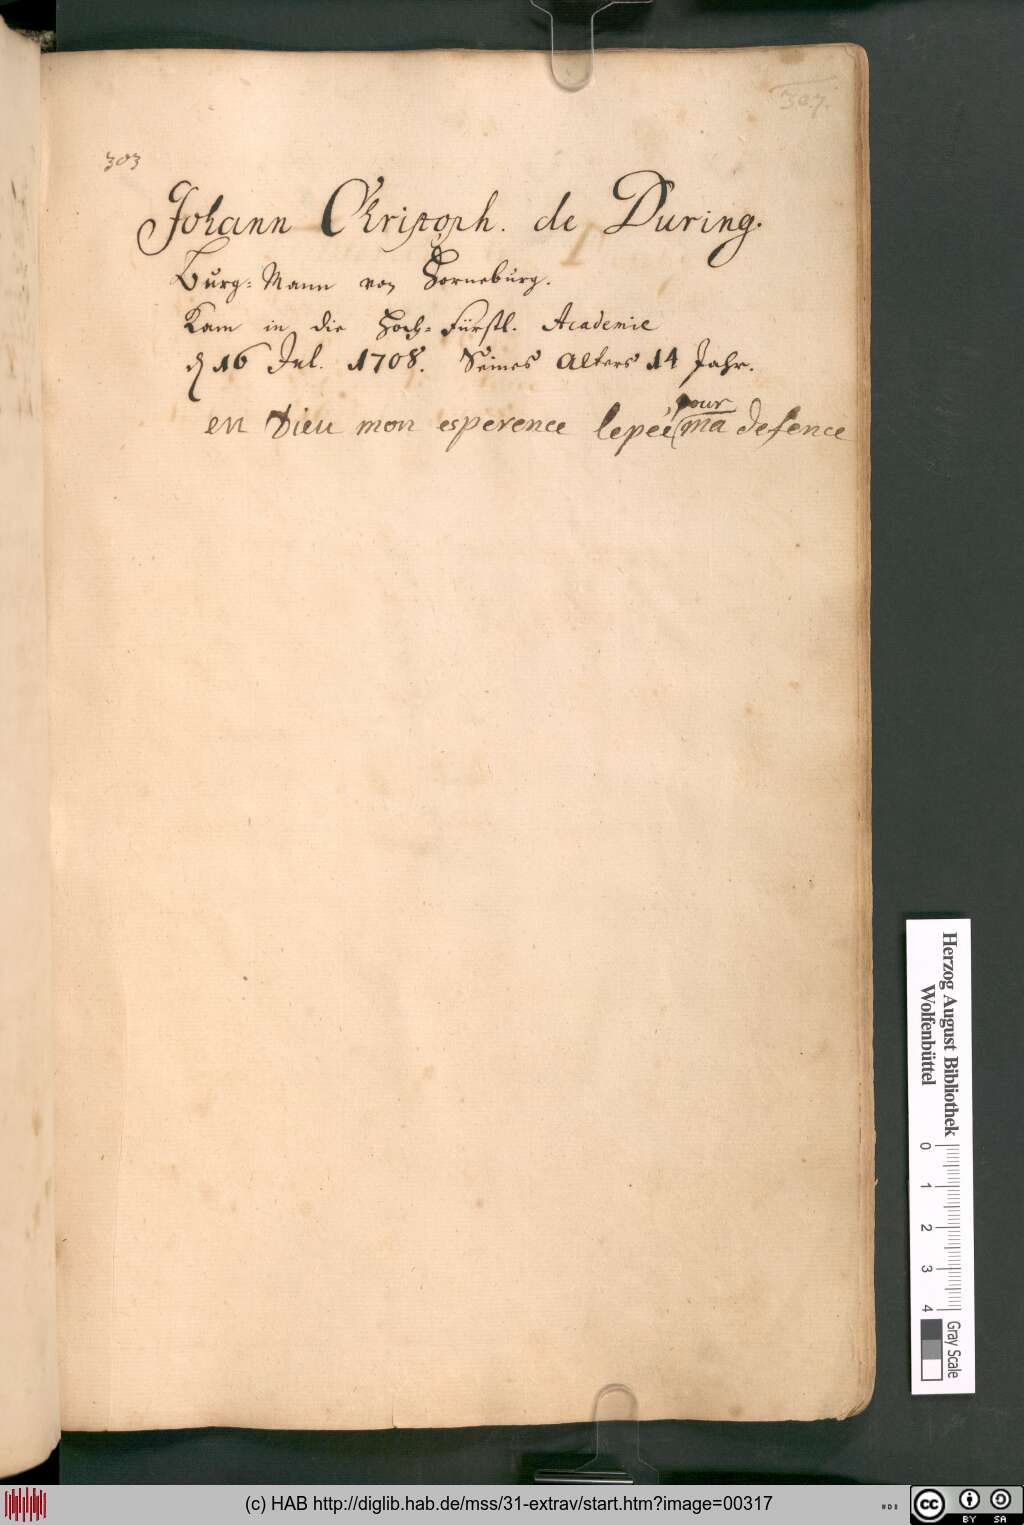 307.
303
Johann Christoph. de During.
Burg-Mann von Horneburg.
Kam in die Hoch-Fürstl. Academie
d 16 Jul. 1708. Seines Alters 14 Jahr.
en Dieu mon esperence lepeé pour ma defence
Herzog August Bibliothek
Wolfenbüttel
0 1 2 3 4
Gray Scale
(c) HAB http://diglib.hab.de/mss/31-extrav/start.htm?image=00317
cc BY SA